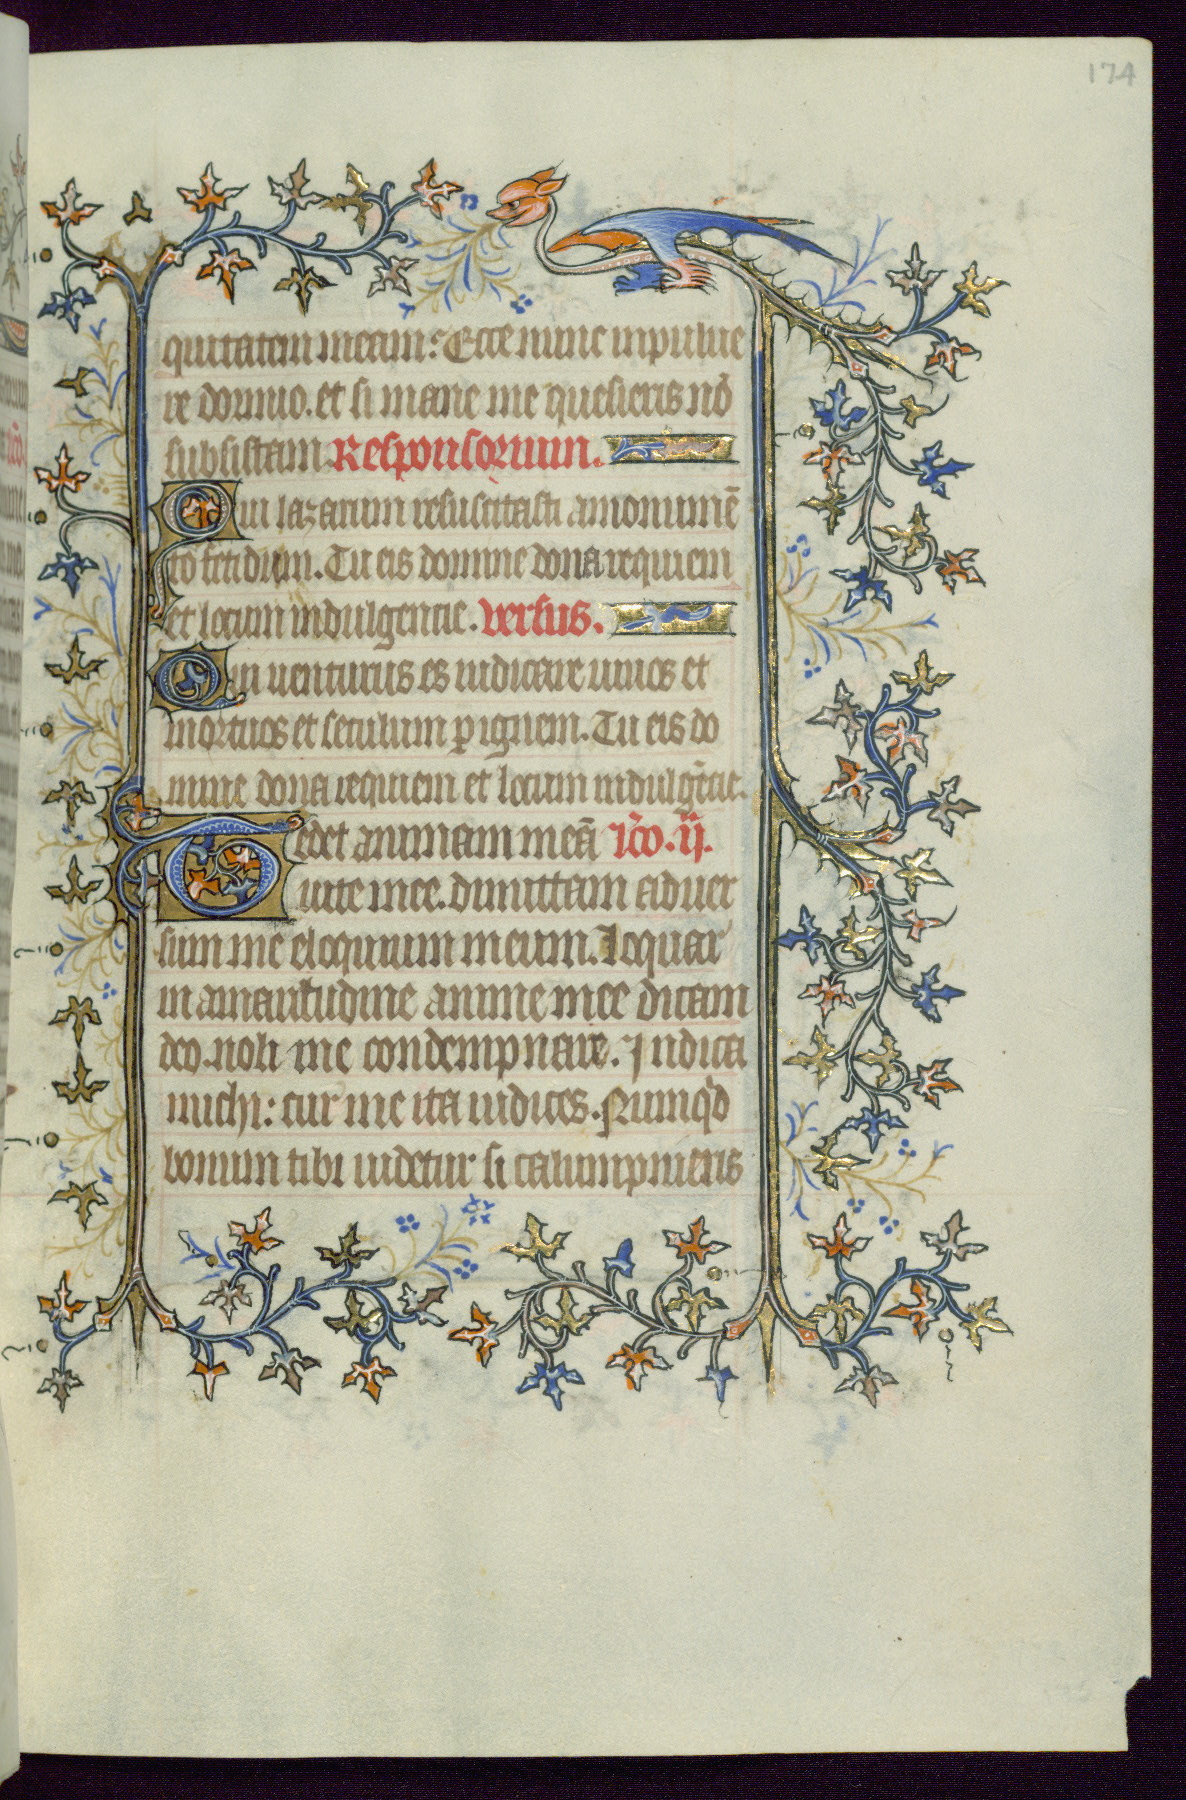 174
quitatem meam: Ecce nunc in pulue
re dormio. et si mane me quesieris nō
subsistam. Responsorium.
Qui lazarum resuscitasti a monumē
to fetidum. Tu eis domine dona requiem
et locum indulgencie. versus.
Qui uenturus es iudicare uiuos et
mortuos et seculum p ignem. Tu eis do
mine dona requiem et locum indulgēcie.
Tedet animam meā lc̄o. ij.
uite mee. dimittam aduer
sum me eloquium meum. Loquar
in amaritudine anime mee dicam
deo. noli me condempnare. Indica
michi: cur me ita iudices. Numqd
bonum tibi uidetur si calumpnieris